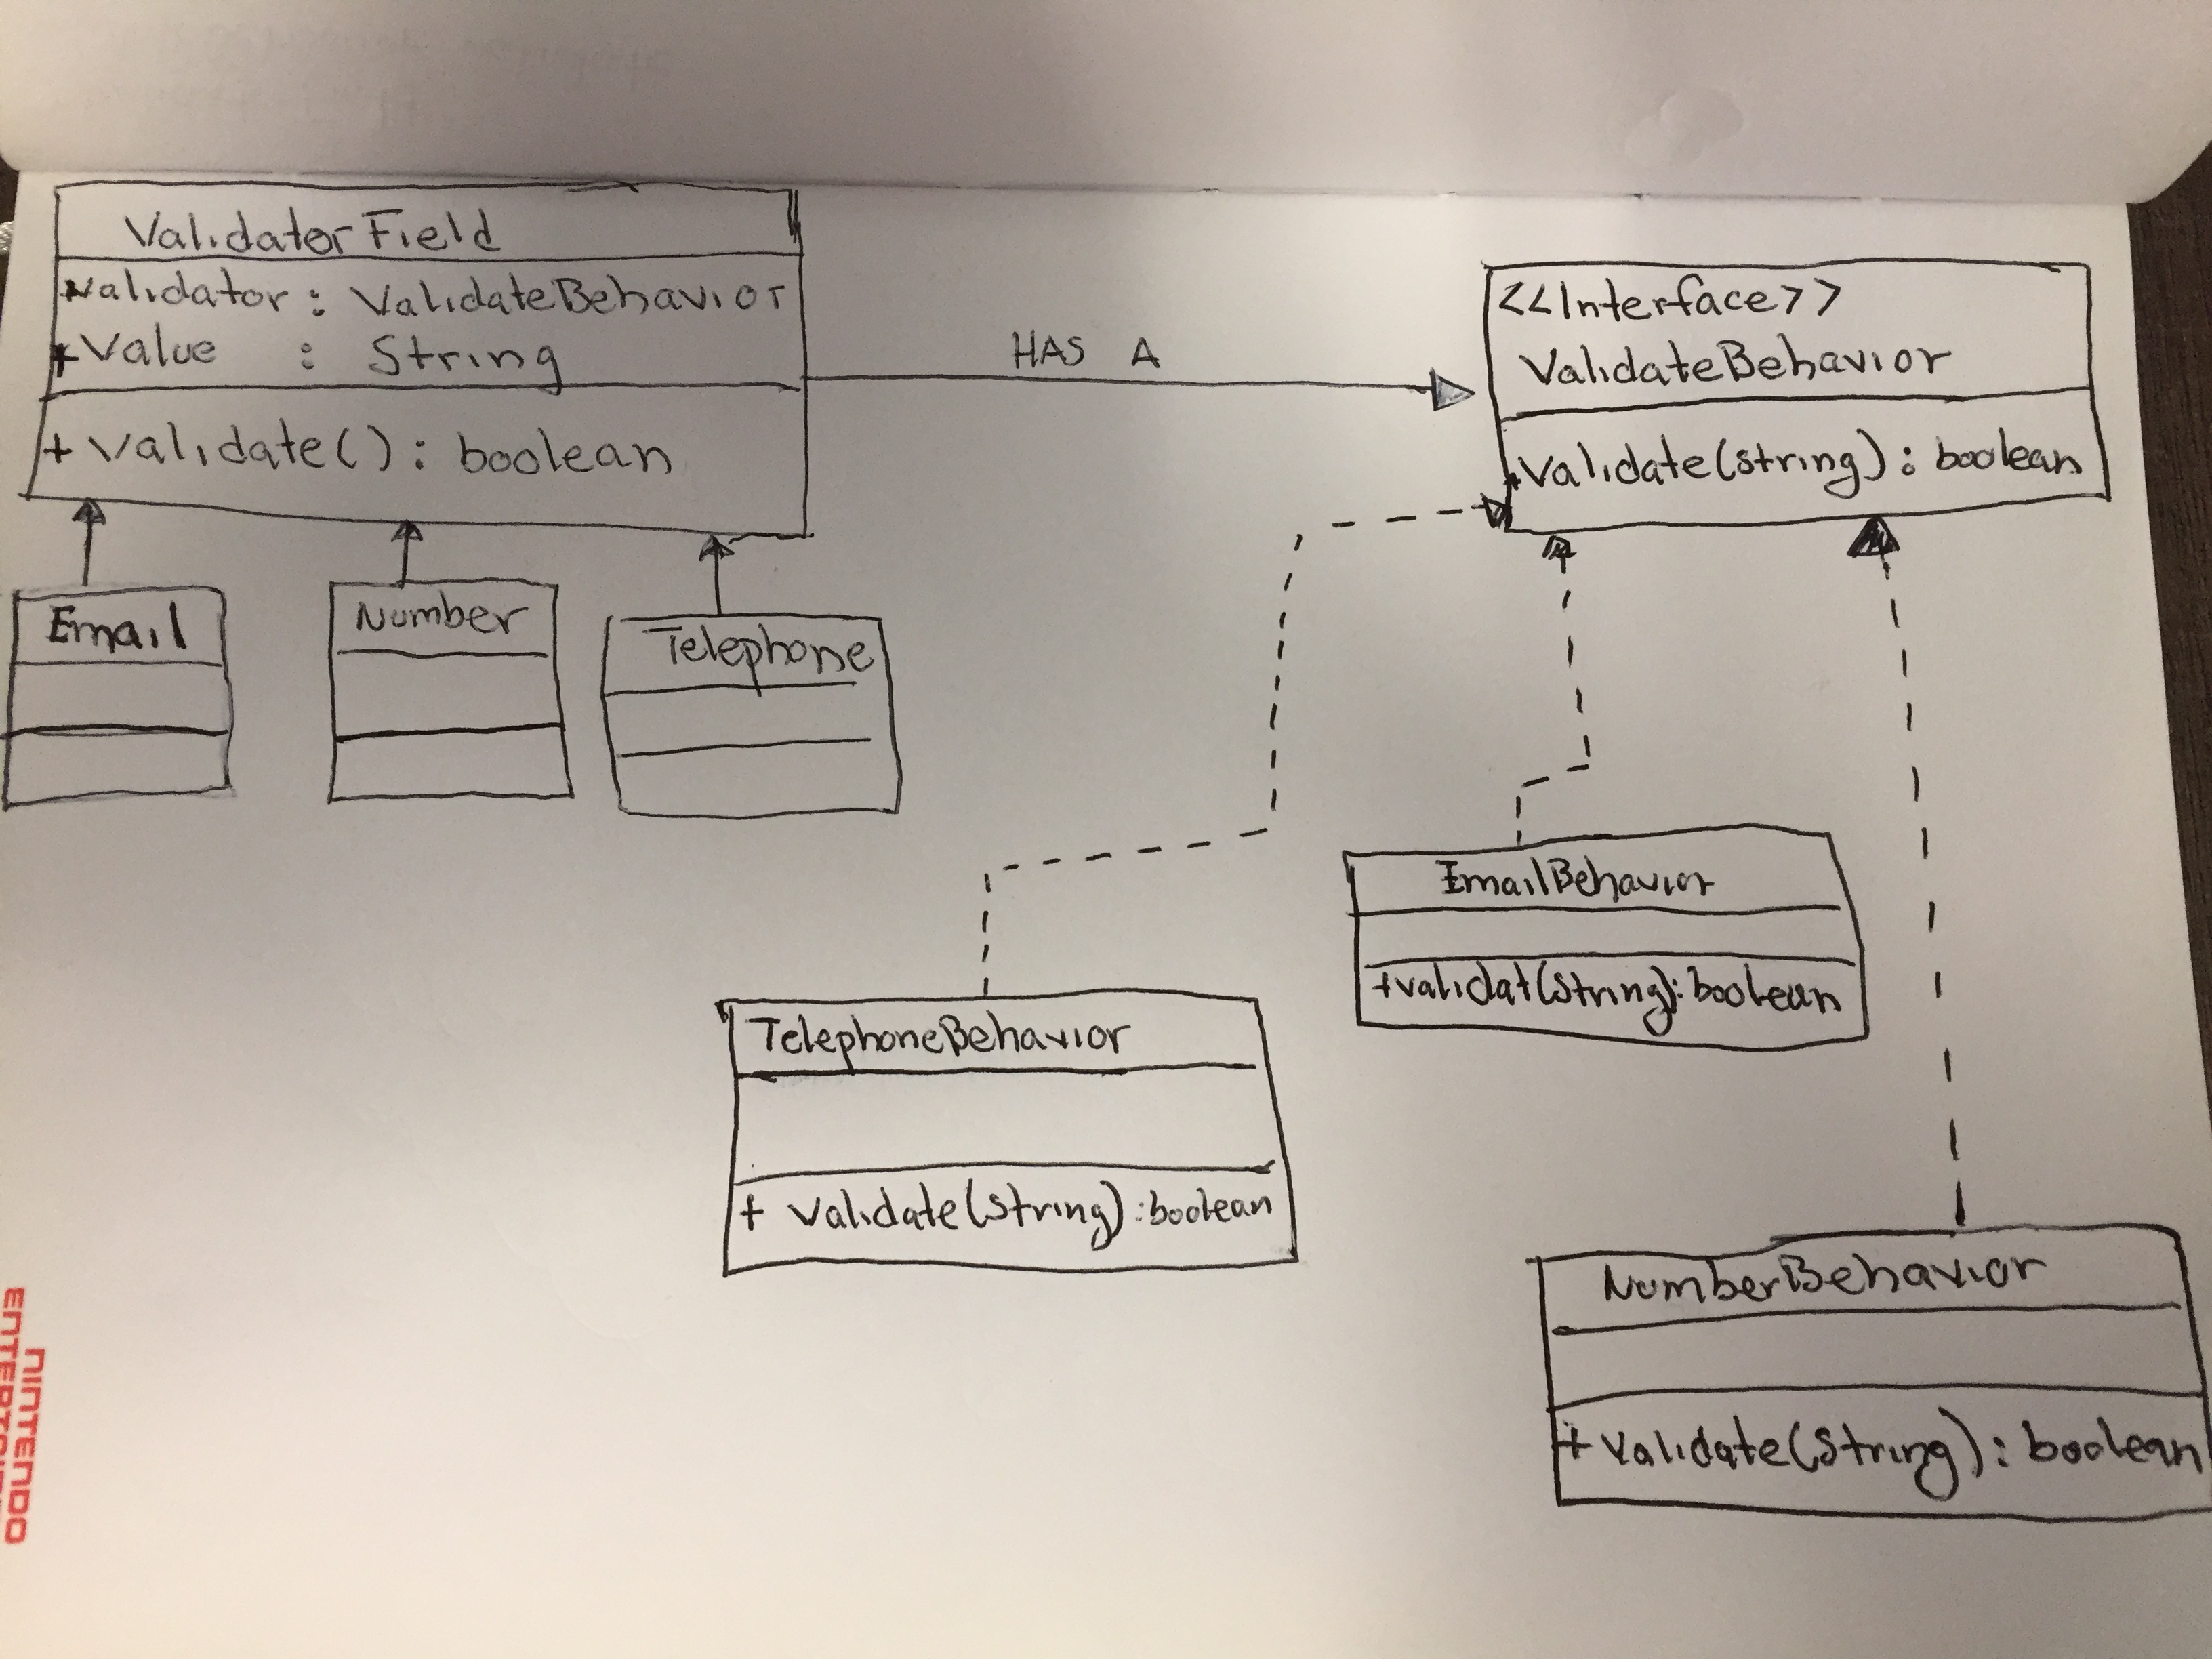 ValidatorField
validator : ValidateBehavior
+ Value : String
+ Validate() : boolean
HAS A
<<Interface>>
ValidateBehavior
+ Validate(string) : boolean
Email
Number
Telephone
EmailBehavior
+validat(String): boolean
TelephoneBehavior
+ Validate(String) : boolean
NumberBehavior
+ Validate(String) : boolean
NINTENDO